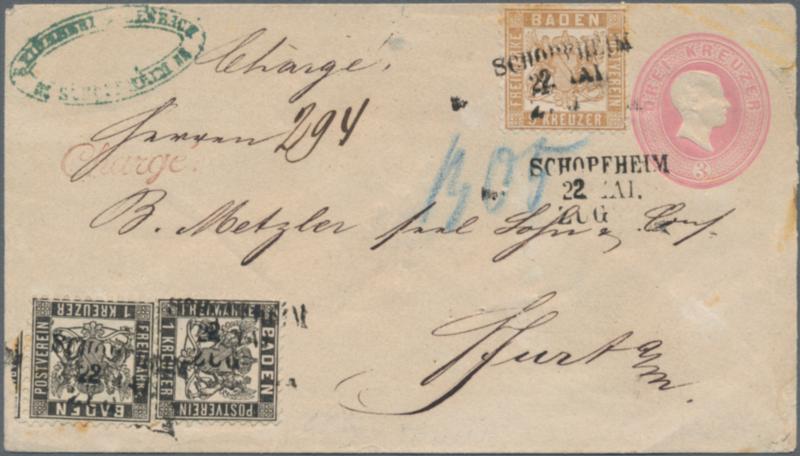 SCHOPFHEIM
Chargé.
BADEN
FREIMARKE
POSTVEREIN
9 KREUZER
SCHOPFHEIM
22 MAI.
DREI KREUZER
3
Herren 294
Chargé.
SCHOPFHEIM
22 MAI.
ZUG
B. Metzler seel Sohn & Cons.
Fkurt a/m.
1 KREUZER
POSTVEREIN
FREIMARKE
BADEN
SCHOPFHEIM
22
BADEN
1 KREUZER
FREIMARKE
POSTVEREIN
ZUG